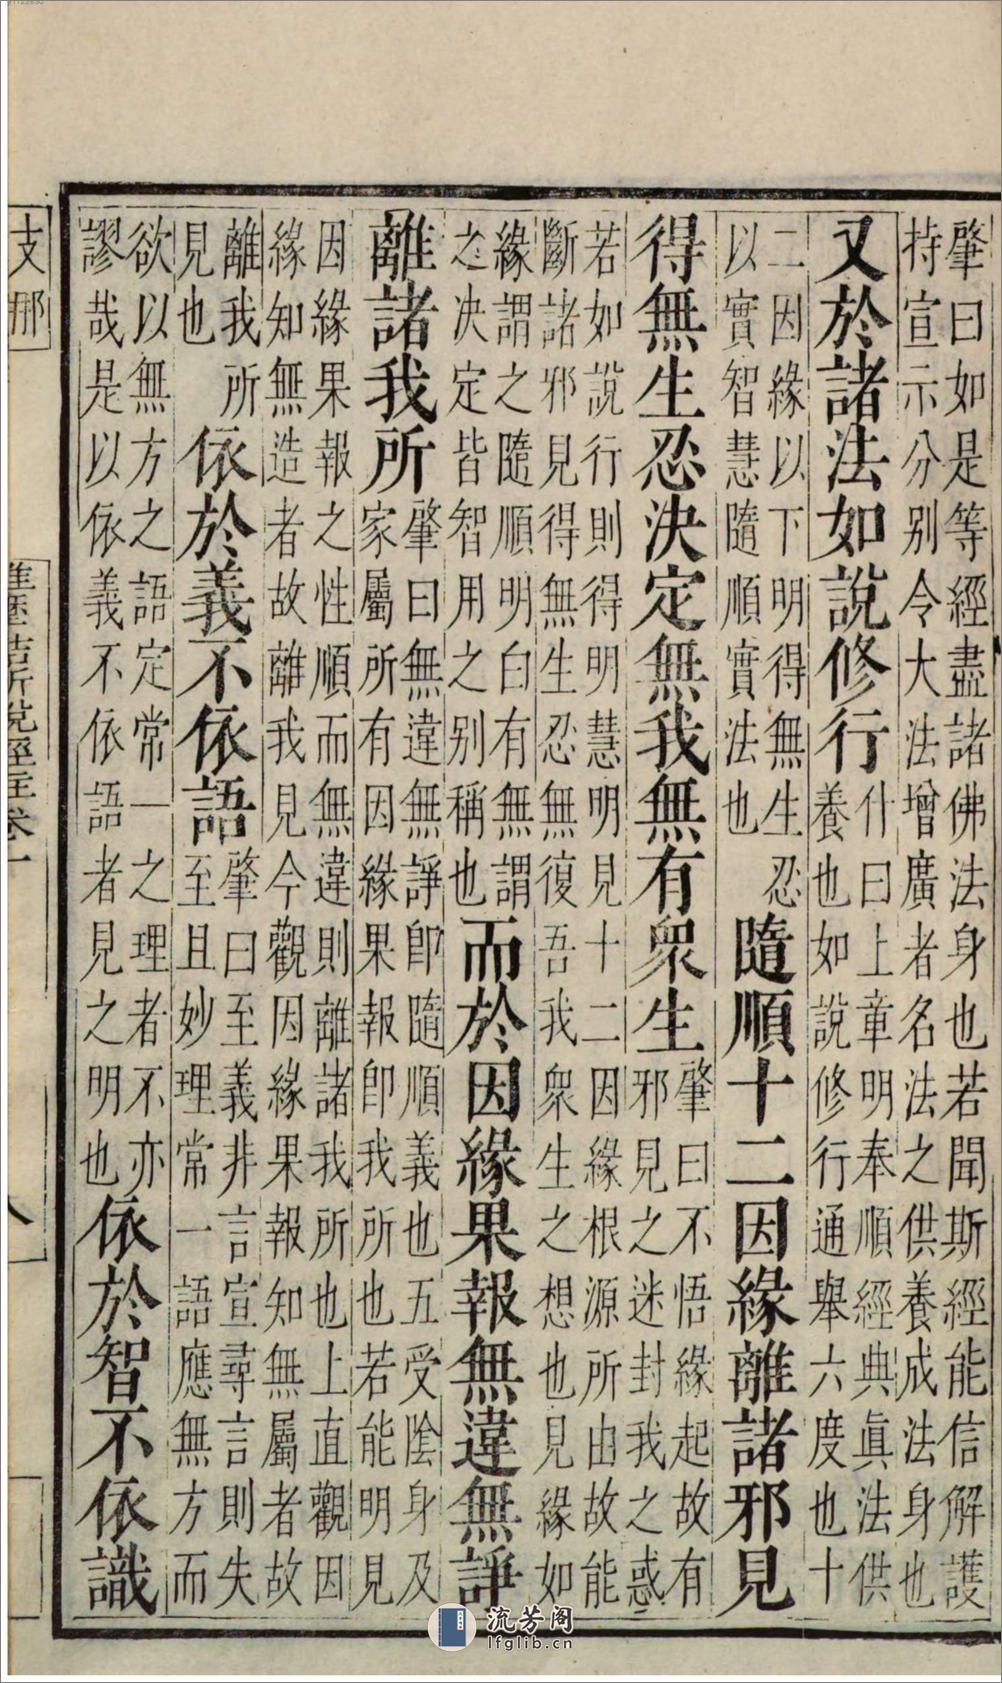 肇曰如是等經盡諸佛法身也若聞斯經能信解護
持宣示分别令大法增廣者名法之供養成法身也
又於諸法如說修行
什曰上章明奉順經典眞法供
養也如說修行通舉六度也十
二因緣以下明得無生忍
以實智慧隨順實法也
隨順十二因緣離諸邪見
得無生忍決定無我無有衆生
肇曰不悟緣起故有
邪見之迷封我之惑
若如說行則得明慧明見十二因緣根源所由故能
斷諸邪見得無生忍無復吾我衆生之想也見緣如
緣謂之隨順明白有無謂
之决定皆智用之别稱也
而於因緣果報無違無諍
離諸我所
肇曰無違無諍卽隨順義也五受陰身及
家屬所有因緣果報卽我所也若能明見
因緣果報之性順而無違則離諸我所也上直觀因
緣知無造者故離我見今觀因緣果報知無屬者故
離我所
見也
依於義不依語
肇曰至義非言宣尋言則失
至且妙理常一語應無方而
欲以無方之語定常一之理者不亦
謬哉是以依義不依語者見之明也
依於智不依識
支那
維摩詰所說經註卷一
八
流芳阁
lfglib.cn